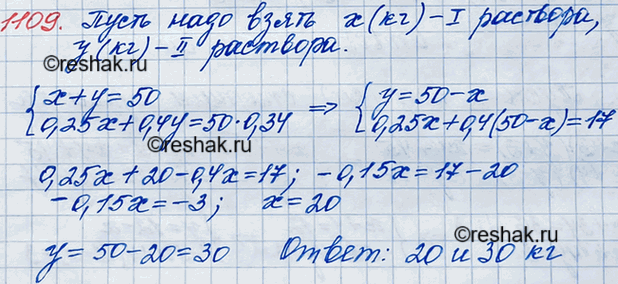 1109. Пусть надо взять x (кг) – I раствора,
y (кг) – II раствора.
©reshak.ru
©reshak.ru
{ x + y = 50
0,25x + 0,4y = 50·0,34 ⇒ { y = 50 – x
0,25x + 0,4(50–x) = 17
0,25x + 20 – 0,4x = 17; – 0,15x = 17 – 20
– 0,15x = –3; x = 20
©reshak.ru
y = 50 – 20 = 30 Ответ: 20 и 30 кг
©reshak.ru